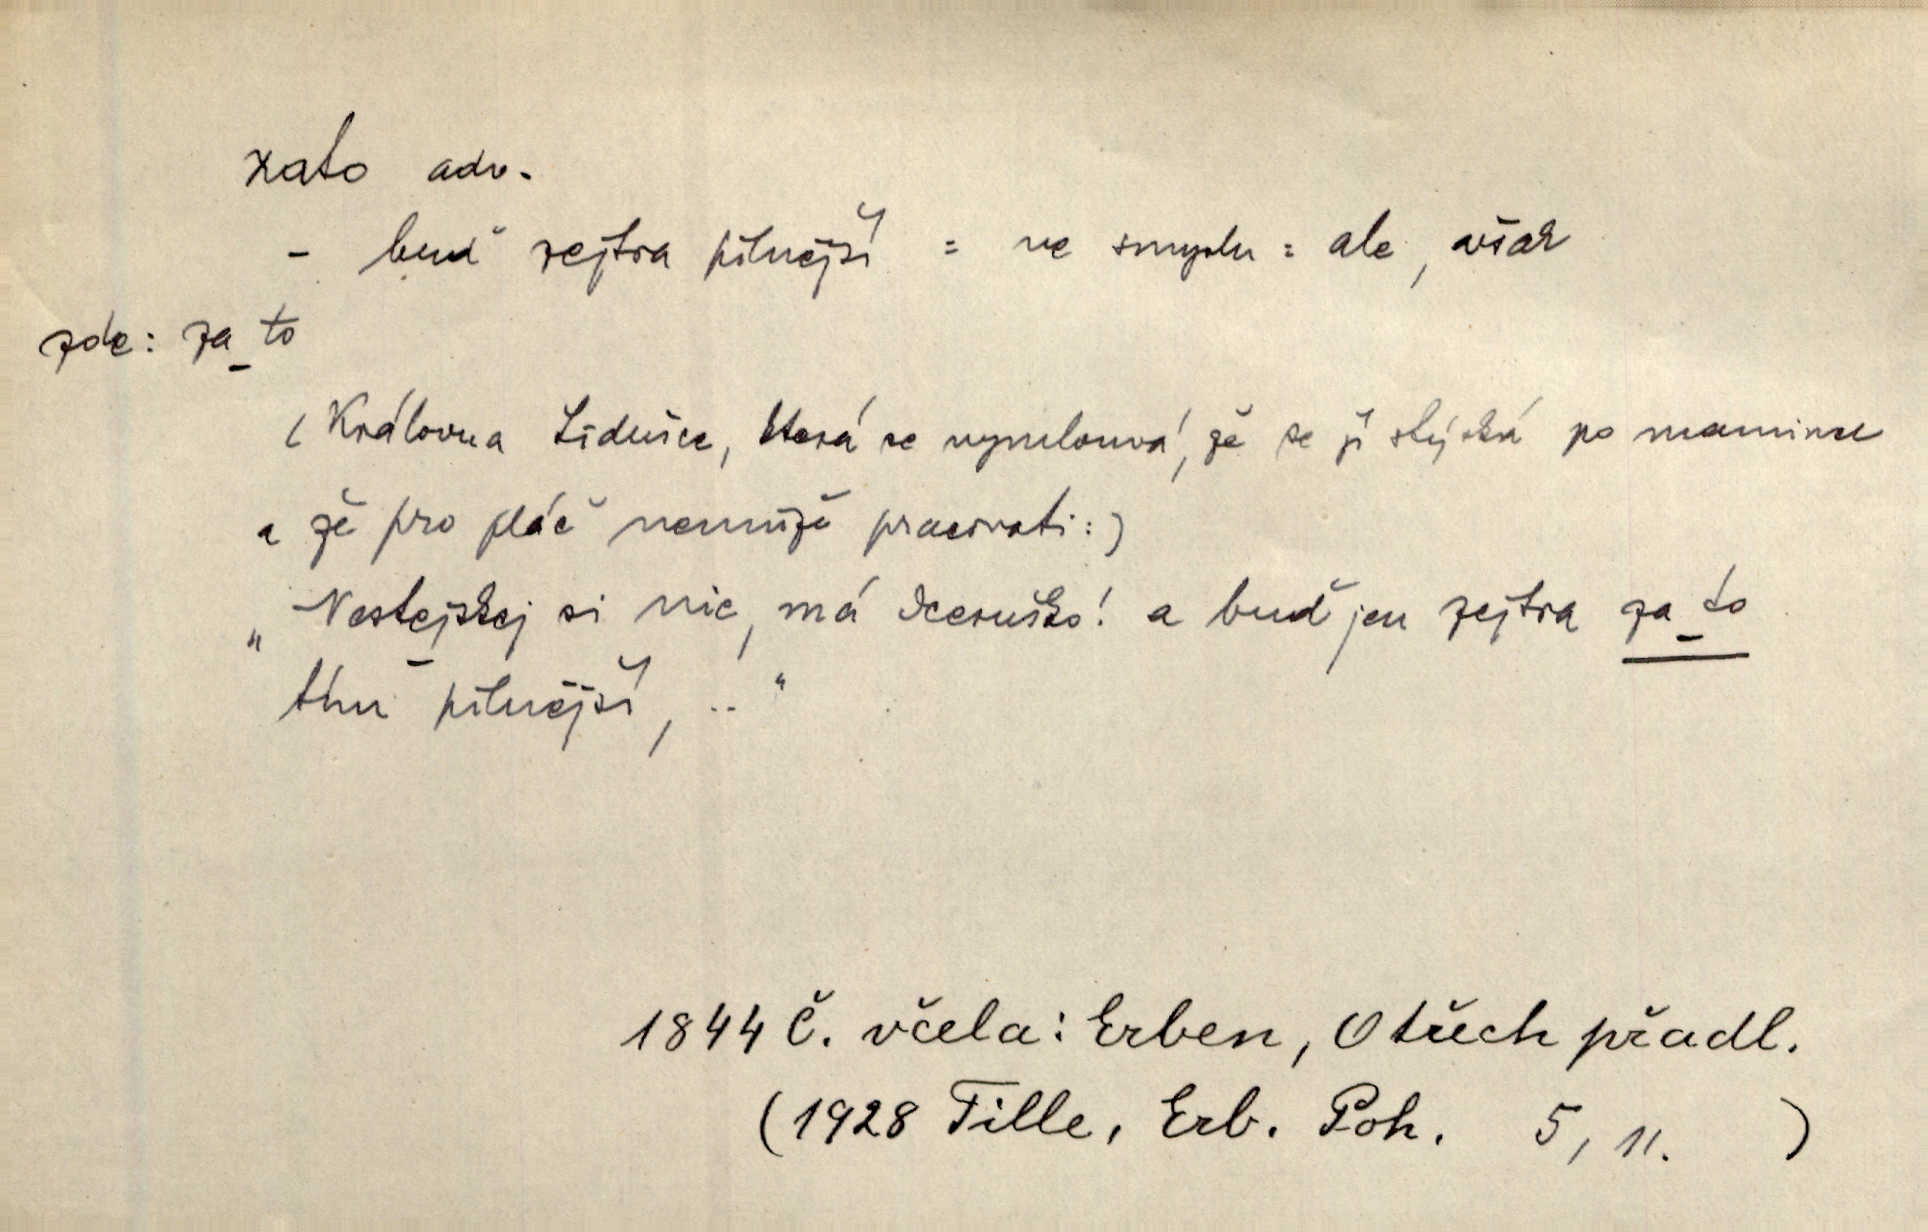 zato adv.
- buď zejtra pilnější = ve smyslu = ale, však
zde: za_to
(Královna Lidušce, která se vymlouvá, že se jí stýská po mamince
a že pro pláč nemůže pracovati:)
„Nestejskej si nic, má dceruško! a buď jen zejtra za_to
tím pilnější, .. "
1844 Č. včela: Erben, O třech přadl.
(1928 Tille, Erb. Poh. 5, 11. )